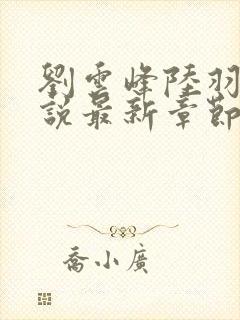 劉雲峰陸羽
說最新章節
喬小廣